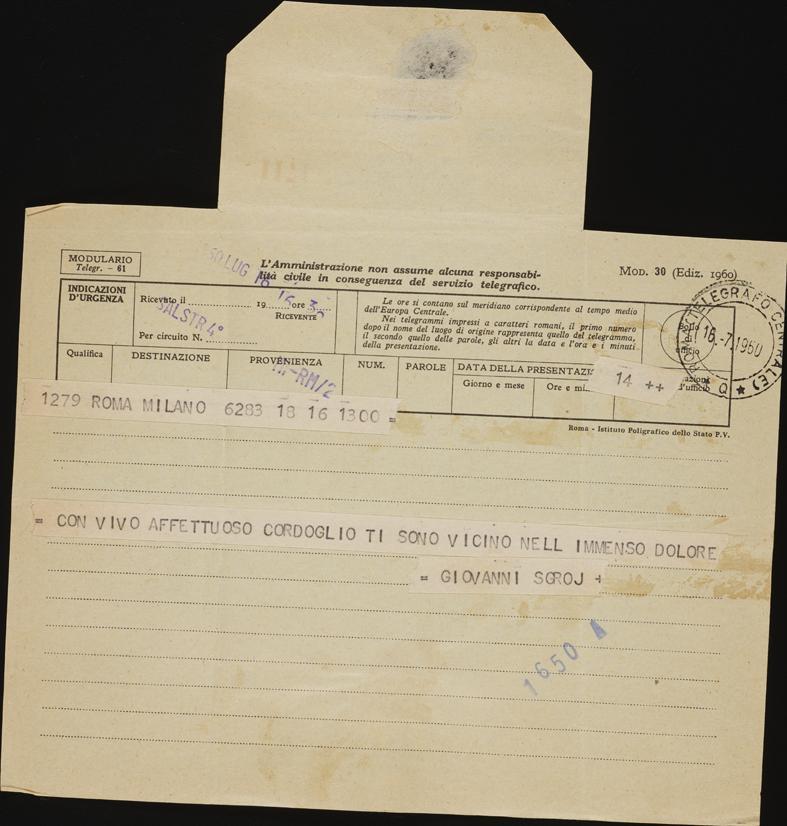 MODULARIO
Telegr. - 61
L'Amministrazione non assume alcuna responsabi-
lità civile in conseguenza del servizio telegrafico.
MOD. 30 (Ediz. 1960)
60 LUG 16 16 32
INDICAZIONI
D'URGENZA
Ricevuto il 19 ore
RICEVENTE
SALSTR 4°
Per circuito N.
Le ore si contano sul meridiano corrispondente al tempo medio
dell'Europa Centrale.
Nei telegrammi impressi a caratteri romani, il primo numero
dopo il nome del luogo di origine rappresenta quello del telegramma,
il secondo quello delle parole, gli altri la data e l'ora e i minuti
della presentazione.
Bollo
di
ufficio
TELEGRAFO CENTRALE
16.-7.1960
Qualifica
DESTINAZIONE
PROVENIENZA
-RM/2
NUM.
PAROLE
DATA DELLA PRESENTAZI
Giorno e mese
Ore e mi
14 ++
d'ufficio
1279 ROMA MILANO 6283 18 16 1300 =
Roma - Istituto Poligrafico dello Stato P.V.
= CON VIVO AFFETTUOSO CORDOGLIO TI SONO VICINO NELL IMMENSO DOLORE
= GIOVANNI SGROJ +
1650